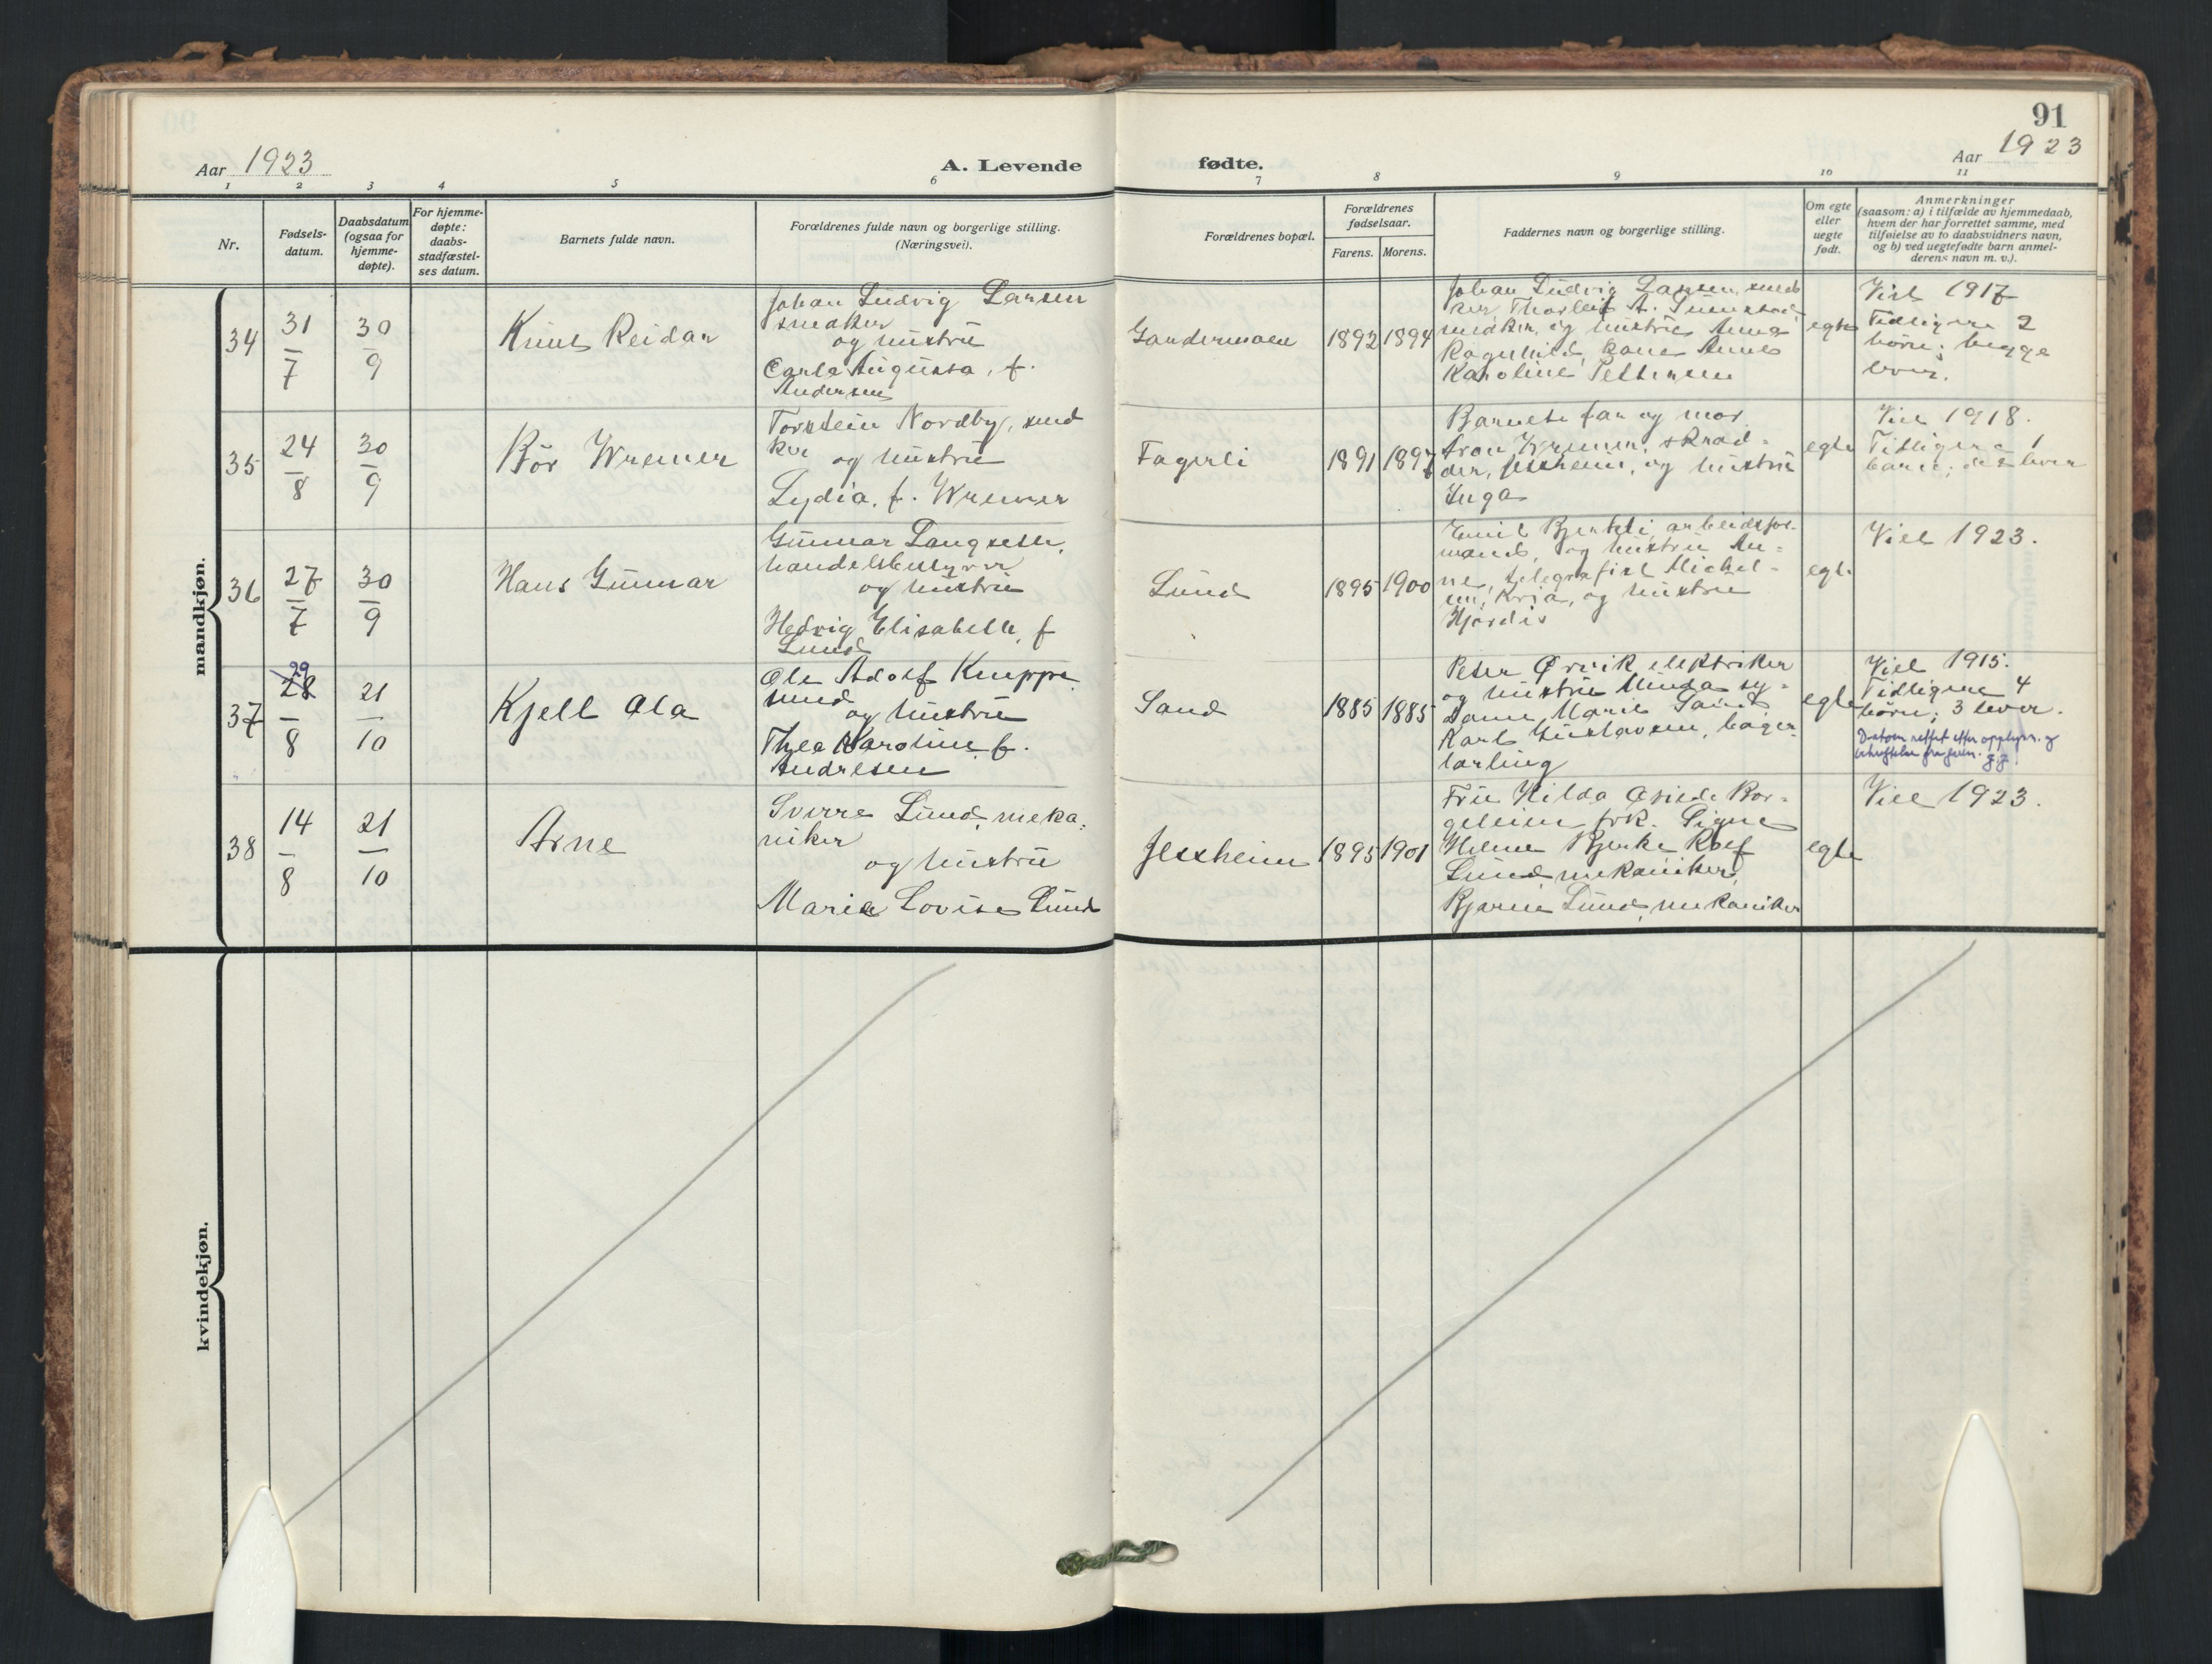 91
Aar 1923
A. Levende
fødte.
Aar 1923
1 2 3 4 5 6 7 8 9 10 11
Nr.
Fødsels-
datum.
Daabsdatum
(ogsaa for
hjemme-
døpte).
For hjemme-
døpte:
daabs-
stadfæstel-
ses datum.
Barnets fulde navn.
Forældrenes fulde navn og borgerlige stilling.
(Næringsvei).
Forældrenes bopæl.
Forældrenes
fødselsaar.
Farens. Morens.
Faddernes navn og borgerlige stilling.
Om egte
eller
uegte
født.
Anmerkninger
(saasom: a) i tilfælde av hjemmedaab,
hvem der har forrettet samme, med
tilføielse av to daabsvidners navn,
og b) ved uegtefødte barn anmel-
derens navn m. v.).
mandkjøn.
34
31
7
30
9
Knut Reidar
Johan Ludvig Larsen
snedker
og hustru
Carla Augusta, f.
Andersen
Gardermoen
1892 1894
Johan Ludvig Larsen, sned
ker, Thorleif A.
snedker, og hustru Anna
Ragnhild, Agnes
Karoline Pettersen
egte
Viet 1917
Tidligere 2
børn; begge
lever.
35
24
8
30
9
Bör Wremer
Torstein Nordby, sned
ker og hustru
Lydia, f. Wremer
Fagerli
1891 1897
Barnets far og mor
Aron Wremer, skræd-
der, Jessheim, og hustru
Inga
egte
Viet 1918.
Tidligere 1
barn; det lever
36
27
7
30
9
Hans Gunnar
Gunnar Langseth,
handelsbestyrer
og hustru
Hedvig Elisabeth, f
Lund
Lund
1895 1900
Emil Bjerkeli, arbeidsfor-
mand, og hustru An-
ne, telegrafist Michel-
sen, Kria, og hustru
Hjördis
egte
Viet 1923.
37
29
28
8
21
10
Kjell Ola
Ole Adolf Knappe
smed
og hustru
Thea Karoline f.
Andresen
Sand
1885 1885
Peter Ørvik, elektriker
og hustru Minda sy-
dame, Marie Sand
Karl Gustavsen, bager-
lærling
egte
Viet 1915.
Tidligere 4
børn; 3 lever.
Datoen rettet efter opplysn. og
bekreftelse fra
38
14
8
21
10
Arne
Sverre Lund, meka-
niker
og hustru
Marie Lovise Lund
Jessheim
1895 1901
Fru Hilda Bor-
geheim frk. Signe
Helene Bjerke Rolf
Lund, mekaniker,
Bjarne Lund, mekaniker
egte
Viet 1923.
kvindekjøn.